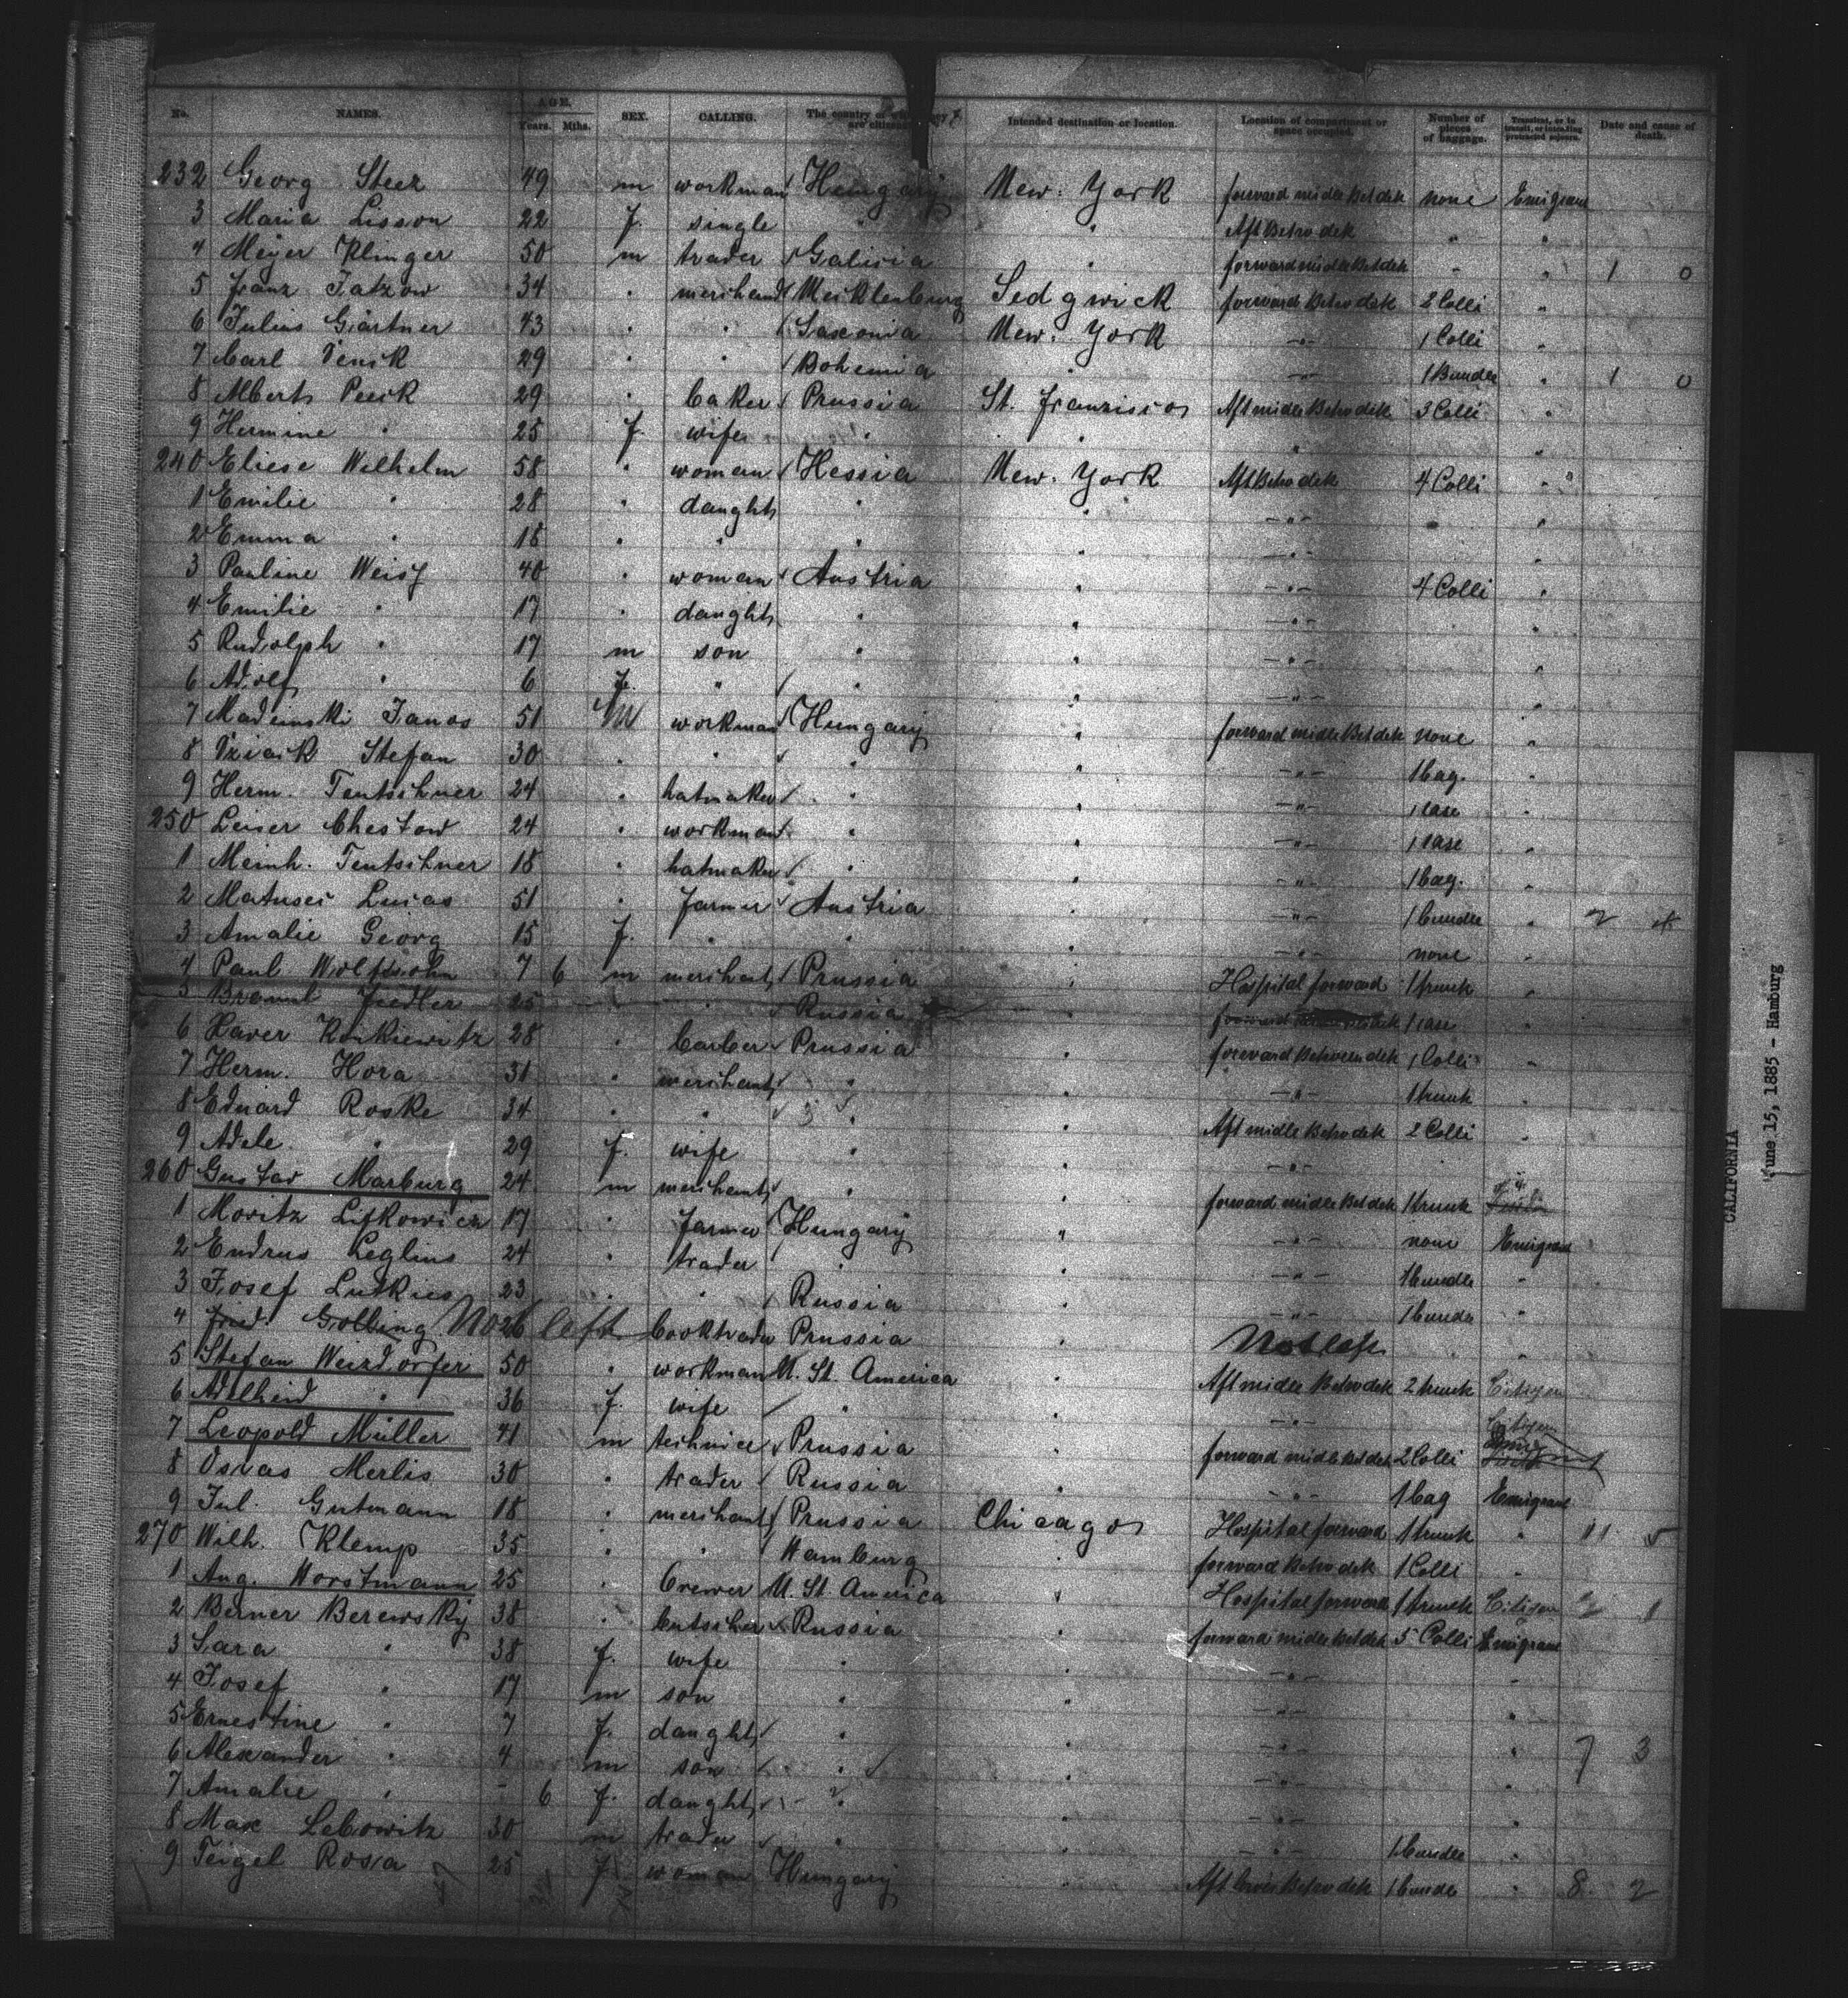 No. NAMES. AGE. Years. Mths. SEX. CALLING. The country of which they are citizens. Intended destination or location. Location of compartment or space occupied. Number of pieces of baggage. Transient, or in transit, or intending protracted sojourn. Date and cause of death.
232 Georg Steer 49 m workman Hungary New. York forward midle Bet dek none Emigrant
3 Maria Lisson 22 f. single " " Aft Betw dek " "
4 Meyer Klinger 50 m trader Galicia " forward midle Bet dek " " 1 0
5 Franz Tatzow 34 " merchant Mecklenburg Sedgwick forward Betw dek 2 Colli "
6 Julius Gärtner 43 " " Saxonia New. York " 1 Colli "
7 Carl 29 " " Bohemia " " 1 Bundle " 1 0
8 Albert Peeck 29 " baker Prussia St. Franzisco Aft midle Betw dek 3 Colli "
9 Hermine " 25 f. wife " " " "
240 Eliese Wilhelm 58 " woman Hessia New. York Aft Betw dek 4 Colli "
1 Emilie " 28 " daught " " " " "
2 Emma " 18 " " " " " "
3 Pauline Weiss 40 " woman Austria " " 4 Colli "
4 Emilie " 17 " daught " " " "
5 Rudolph " 17 m son " " " "
6 Adolf " 6 f. " " " " "
7 Madeinski Janos 51 m workman Hungary " forward midle Bet dek none "
8 Stefan 30 " " " " " 1 bag. "
9 Herm. Tentschner 24 " hatmaker " " " 1 case "
250 Leiser Chestow 24 " workman " " " 1 case "
1 Meinh. Tentschner 18 " hatmaker " " " 1 bag. "
2 Matusci Lucas 51 " farmer Austria " " 1 bundle " 2 4
3 Amalie Georg 15 f. " " " " none
4 Paul Wolfssohn 7 6 m merchant Prussia " Hospital forward 1 trunk "
5 Fiedler 25 " " Russia " 1 case "
6 Xaver 28 " barber Prussia " forward Betweendek 1 Colli "
7 Herm. Hora 31 " merchant " " " 1 trunk "
8 Eduard Roske 34 " " " Aft midle Betw dek 2 Colli "
9 Adele " 29 f. wife " " "
260 Gustav Marburg 24 m merchant " " forward midle Bet dek 1 trunk
1 Moritz Lifkowicz 17 " farmer Hungary " " none Emigrant
2 Endrus Leglins 24 " trader " " " 1 bundle "
3 Josef Lutkies 23 " " Russia " " 1 bundle "
4 Fried. Golling Not 26 left booktrader Prussia " Not left "
5 Stefan Weirdorfer 50 " workman U. St. America " Aft midle Betw dek 2 trunk Citizen
6 Adelheid " 36 f. wife " " " Citizen
7 Leopold Müller 41 m technicer Prussia " forward midle Bet dek 2 Colli
8 Osvas Merlis 30 " trader Russia " " 1 bag Emigrant
9 Jul. Gutmann 18 " merchant Prussia Chicago Hospital forward 1 trunk " 11 5
270 Wilh. Klemp 35 " " Hamburg " forward Betw dek 1 Colli "
1 Aug. Horstmann 25 " brewer U. St. America " Hospital forward 1 trunk Citizen 2 1
2 Berner Berewsky 38 " butscher Russia " forward midle Bet dek 5 Colli Emigrant
3 Sara " 38 f. wife " " " "
4 Josef " 17 m son " " " "
5 Ernestine " 7 f. daught " " " "
6 Alexander " 4 m son " " " " 7 3
7 Amalie " - 6 f. daught " " "
8 Max Lebowitz 30 m trader " " " 1 bundle "
9 Teigel Rosa 25 f woman Hungary " Aft Betw dek 1 bundle " 8 2
CALIFORNIA
June 15, 1885 - Hamburg